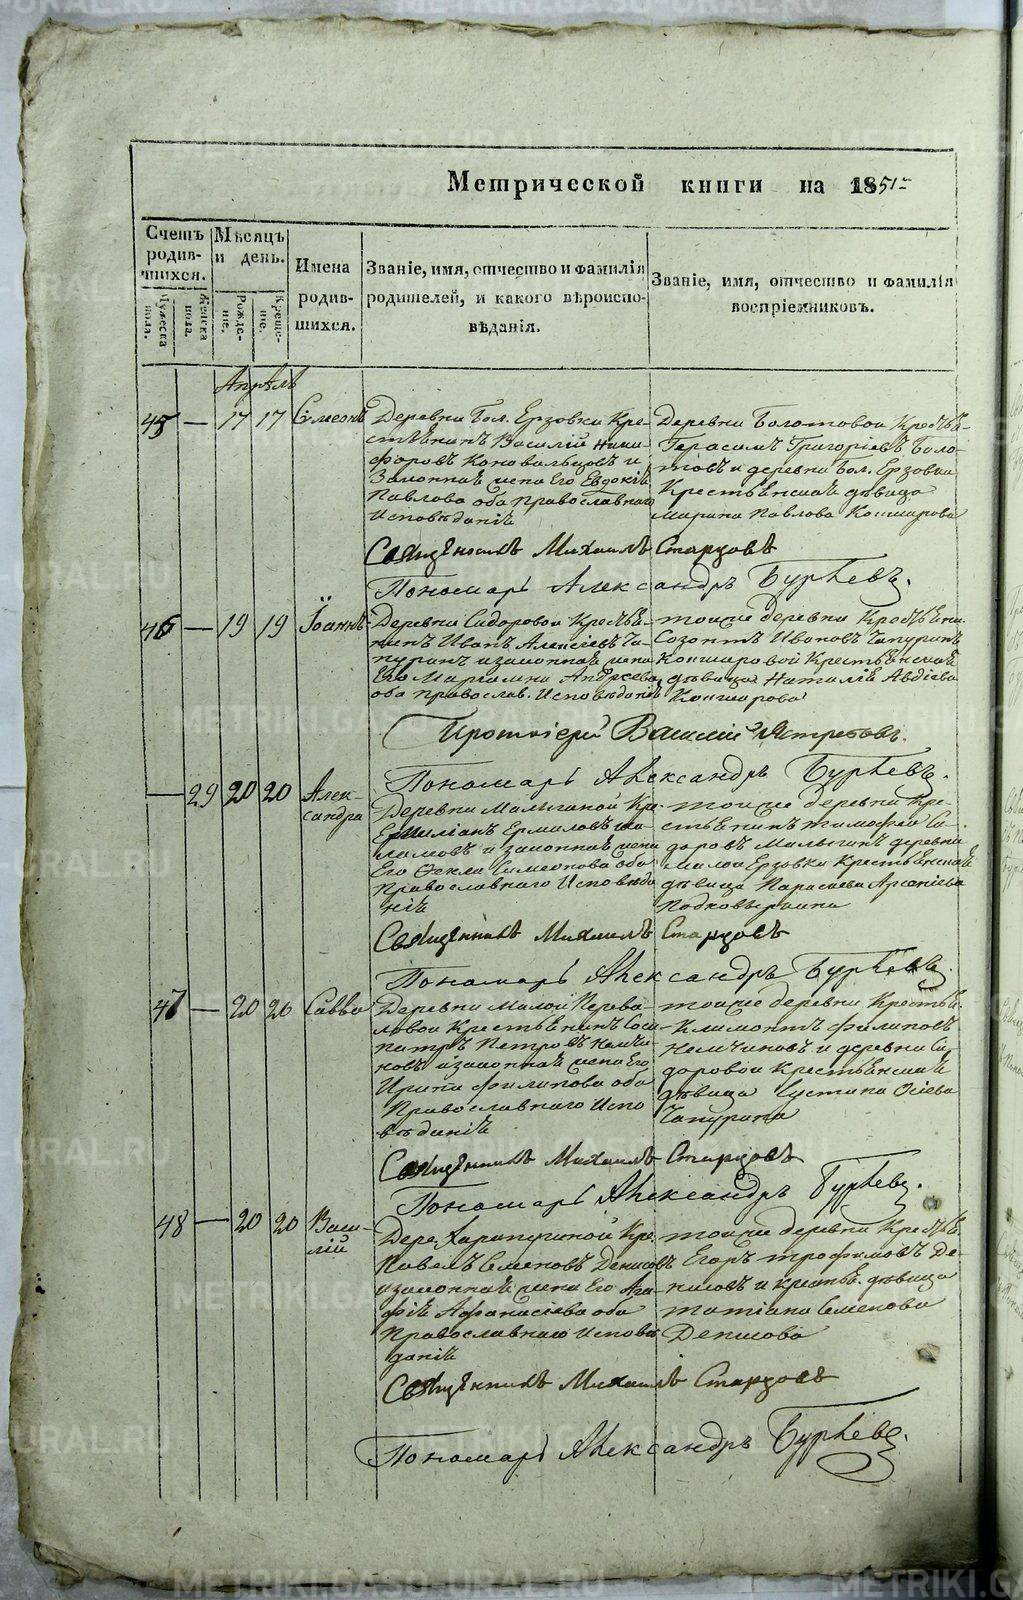 Метрической книги на 1851-
Счетъ родив-шихся.
Мѣсяцъ и день.
Имена родив-шихся.
Званіе, имя, отчество и фамилія родителей, и какого вѣроиспо-вѣданія.
Званіе, имя, отчество и фамилія воспріемниковъ.
Мужеска пола.
Женска пола.
Рожде-ніе.
Креще-ніе.
Апрѣль
45 — 17 17 Сѵмеонъ
Деревни Бол. Ерзовки Кре-
стьянинъ Василій Ники-
форовъ Коновальцовъ и
Законная жена Его Евдокія
Павлова оба православнаго
Исповѣданія
Деревни Болотовой Крестья.
Герасимъ Григоріевъ Боло-
товъ и деревни Бол. Ерзовки
Крестьянская дѣвица
Марина Павлова Кокшарова
Священникъ Михаилъ Старцовъ
Пономарь Александръ Бурѣевъ.
46 — 19 19 Іоаннъ
Деревни Сидоровой Крестья-
нинъ Иванъ Алексіевъ Ча-
пуринъ и законная жена
Его Марiамна Андреева
оба православ. Исповѣданія
тойже деревни Крестьяни.
Созонтъ Ивановъ Чапуринъ
Кокшаровой Крестьянская
дѣвица Наталія Авдіева
Кокшарова
Протоіерей Василій Ястребовъ.
Пономарь Александръ Бурѣевъ.
— 29 20 20 Алек-
сандра
Деревни Малыгиной Кре.
Емиліанъ Ермиловъ
и законная жена
Его Ѳекла Симеонова оба
Православнаго Исповѣда
нія
тойже деревни Кре-
стьянинъ Тимофей Си-
доровъ Малыгинъ деревни
Малой Ерзовки Крестьянская
дѣвица Параскева Арсеніева
Подковыркина
Священникъ Михаилъ Старцовъ
Пономарь Александръ Бурѣевъ.
47 — 20 20 Савва
Деревни Малой Перева-
ловой Крестьянинъ Соси-
патръ Петровъ Немчи-
новъ и законная жена Его
Ирина Филипова оба
Православнаго Испо
вѣданія
тойже деревни Крестья.
Климонтъ Филиповъ
Немчиновъ и деревни Си-
доровой Крестьянская
дѣвица Іустина Осіева
Чапурина
Священникъ Михаилъ Старцовъ
Пономарь Александръ Бурѣевъ.
48 — 20 20 Васи-
лій
Дере. Харапугиной Кре.
Павелъ Семеновъ Денисовъ
и законная жена Его Ага-
фія Афанасіева оба
Православнаго Исповѣ
данія
тойже деревни Крестья.
Егоръ Трофимовъ Де-
нисовъ и крестья. дѣвица
Татіана Семенова
Денисова
Священникъ Михаилъ Старцовъ
Пономарь Александръ Бурѣевъ.
METRIKI.GASO-URAL.RU